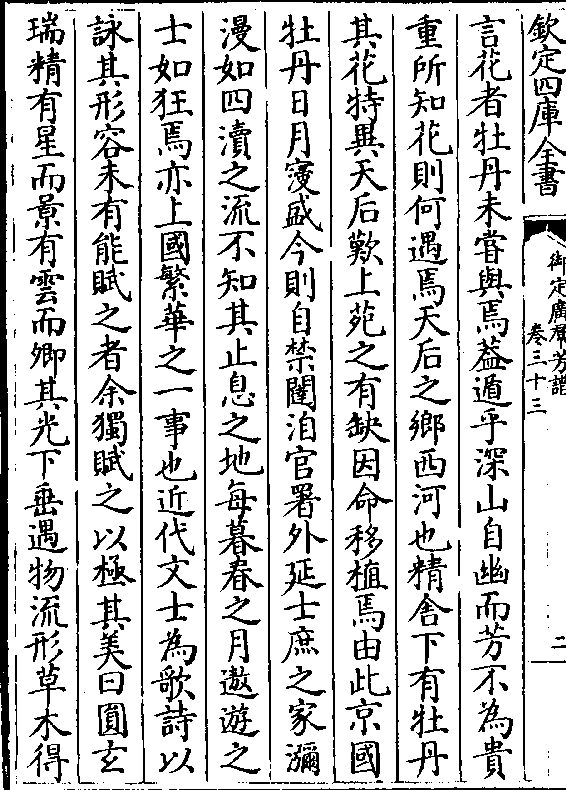 欽定四庫全書
御定廣羣芳譜
卷三十三
二
言花者牡丹未嘗與焉葢遁乎深山自幽而芳不為貴
重所知花則何遇焉天后之鄉西河也精舍下有牡丹
其花特異天后歎上苑之有缺因命移植焉由此京國
牡丹日月寖盛今則自禁闥洎官署外延士庶之家瀰
漫如四瀆之流不知其止息之地每暮春之月遨遊之
士如狂焉亦上國繁華之一事也近代文士為歌詩以
詠其形容未有能賦之者余獨賦之以極其美曰圓玄
瑞精有星而景有雲而卿其光下垂遇物流形草木得